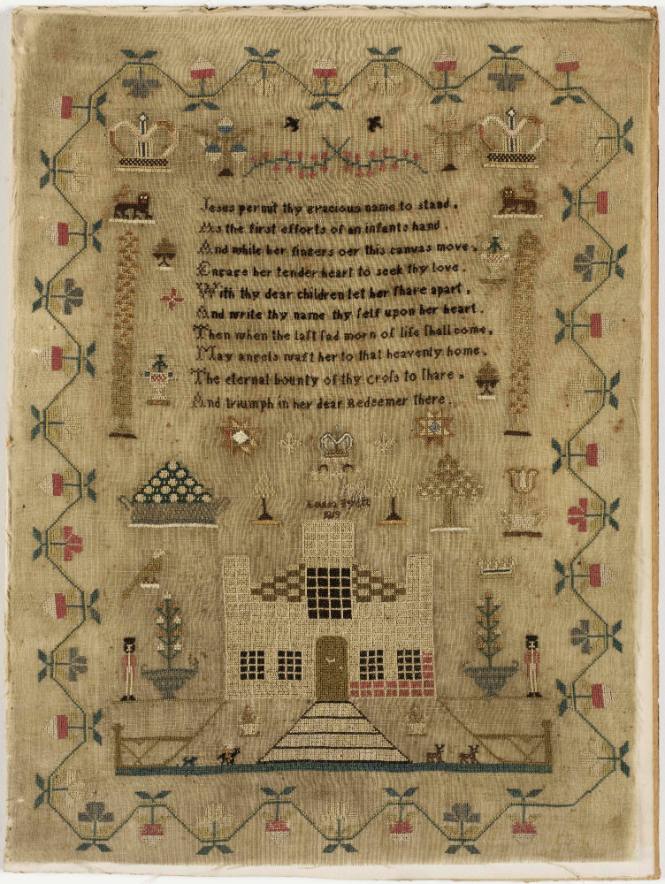 Jesus permit thy gracious name to stand.
As the first efforts of an infants hand.
And while her fingers oer this canvas move.
Engage her tender heart to seek thy love.
With thy dear children let her ſhare apart.
And write thy name thy ſelf upon her heart.
Then when the laſt ſad morn of life ſhall come.
May angels waft her to that heavenly home.
The eternal bounty of thy croſs to ſhare.
And triumph in her dear Redeemer there.